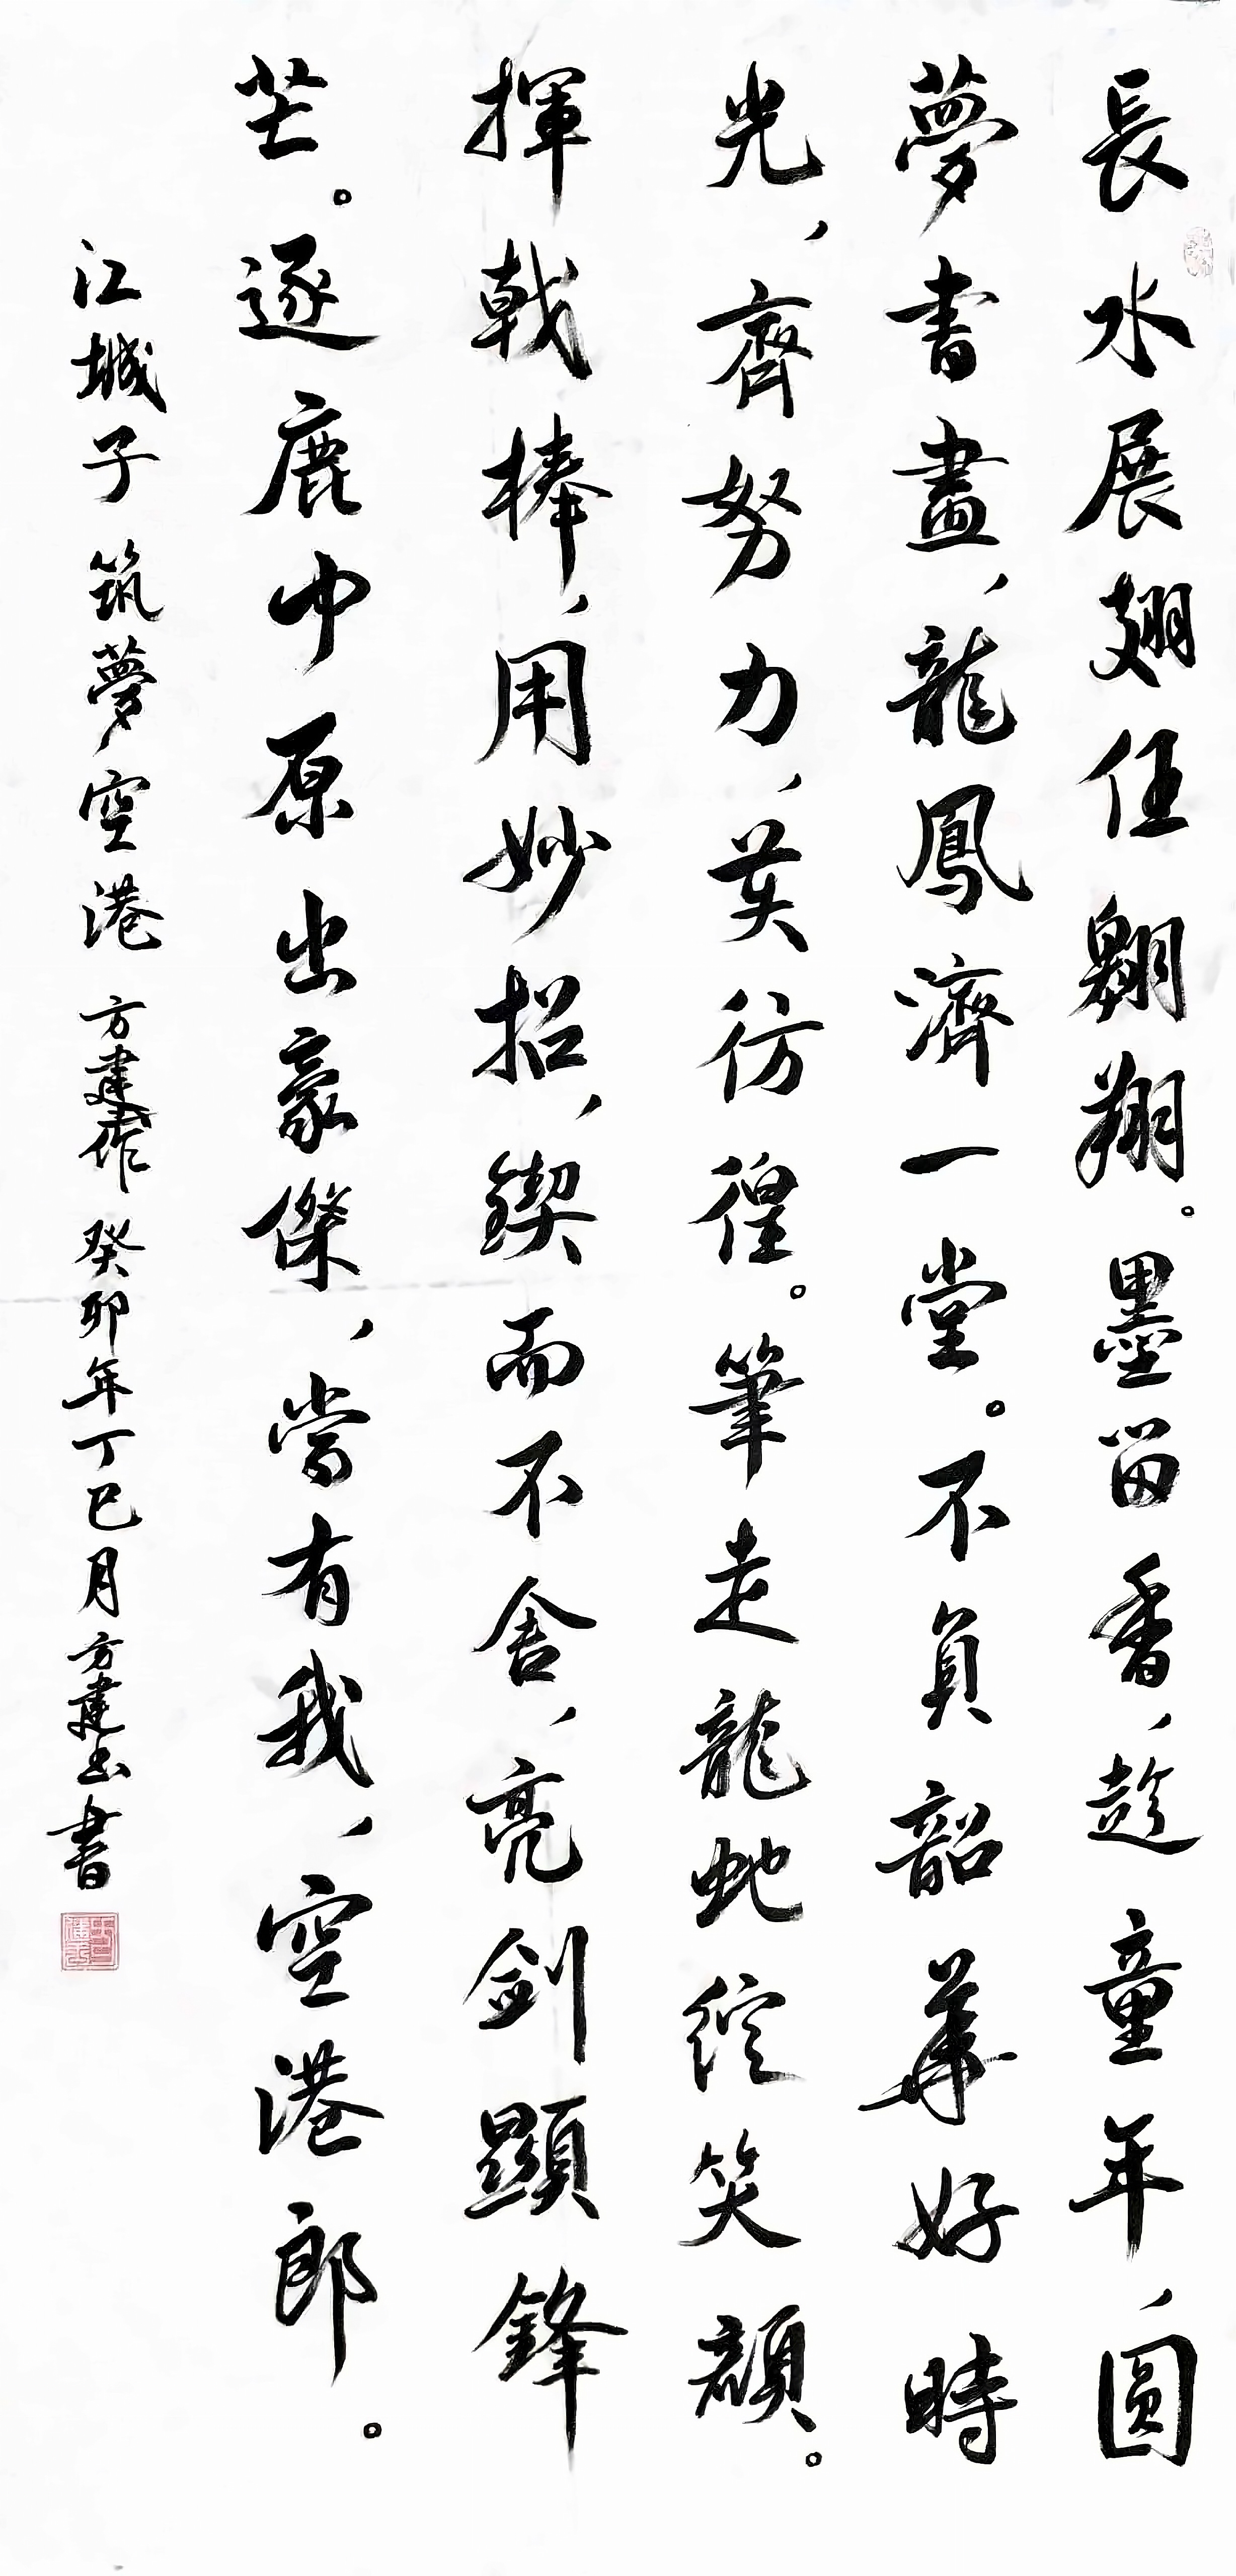 長水展翅任翱翔。墨留香，趁童年，圆
夢書畫，龍鳳濟一堂。不負韶華好時
光，齊努力，莫彷徨。筆走龍蛇綻笑顏。
揮戟棒，用妙招，鍥而不舍，亮剑顯鋒
芒。逐鹿中原出豪傑，當有我，空港郎。
江城子 筑夢空港 方建作 癸卯年丁巳月 方建出書